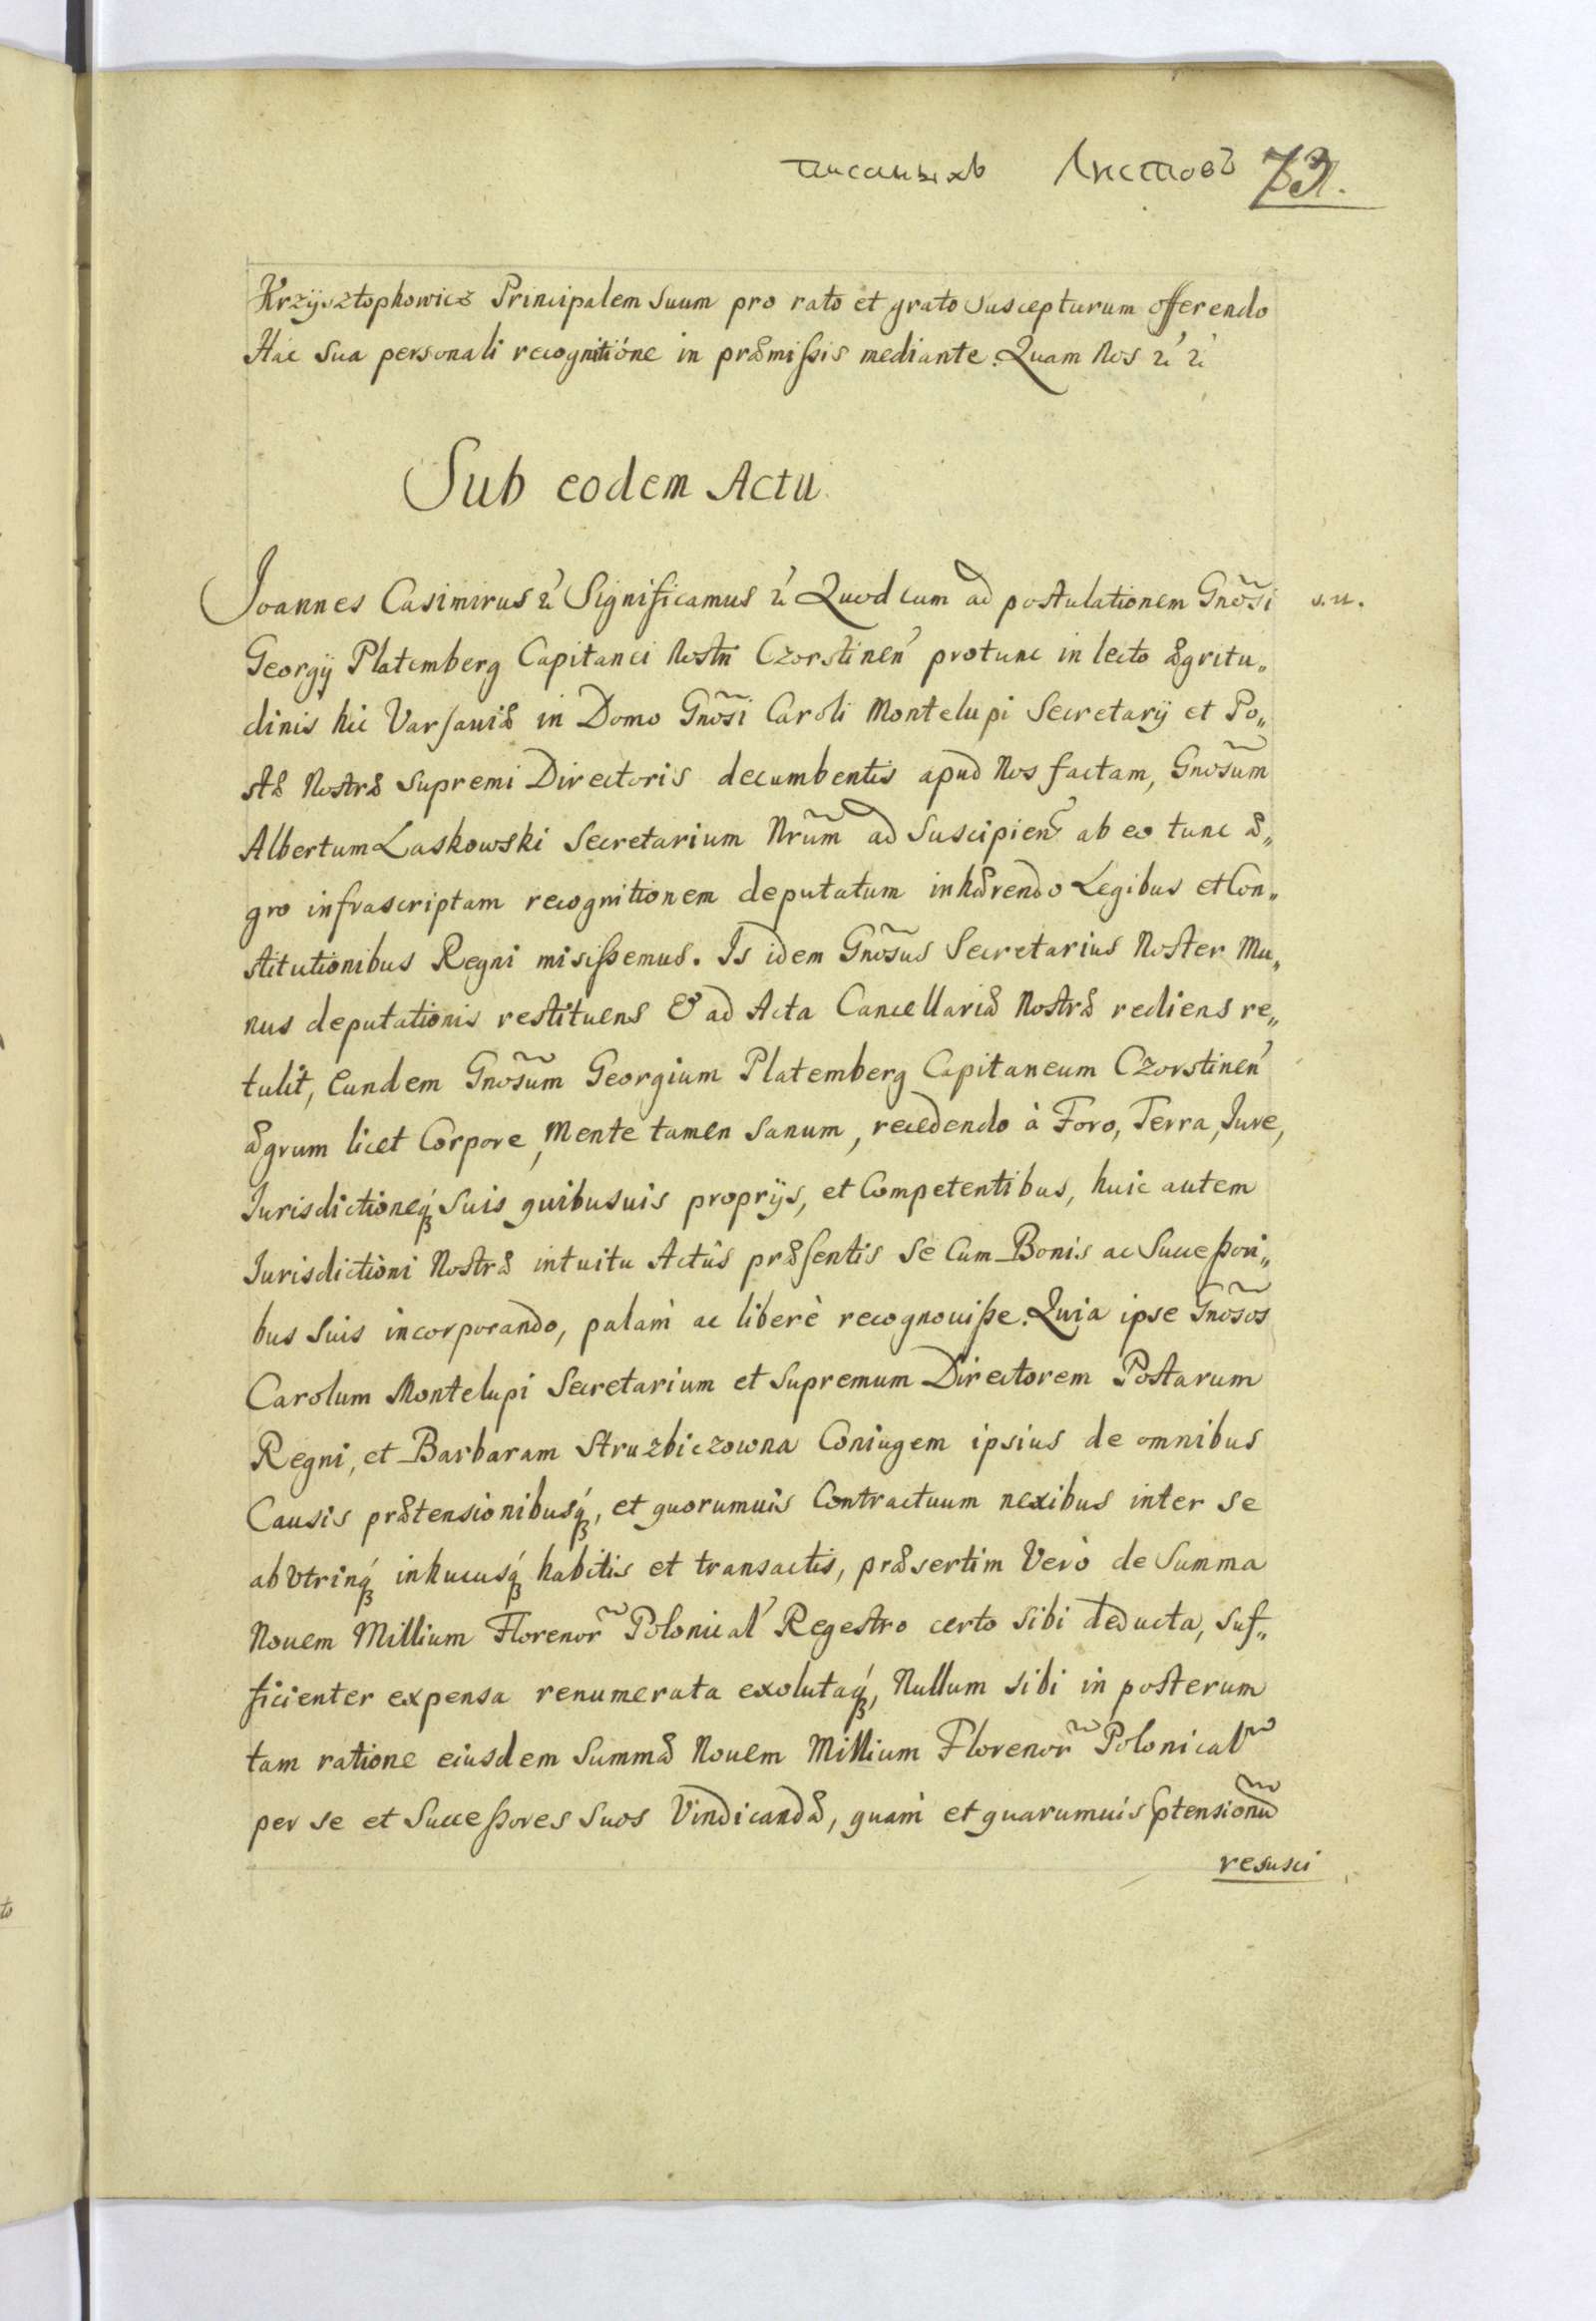 писаныхъ Листовъ 73.
Krzÿsztophowicz Principalem Suum pro rato et grato suscepturum offerendo
Hac sua personali recognitióne in præmißis mediante. Quam Nos &' &'
Sub eodem Actu.
Joannes Casimirus &' Significamus &' Quod cum ad postulationem Gnõsi
Georgÿ Platemberg Capitanei Nostri Czorstinen' protunc in lecto ægritu„
dinis hic Varsaviæ in Domo Gnõsi Caroli Montelupi Secretarÿ et Po„
stæ Nostræ Supremi Directoris decumbentis apud Nos factam, Gnõsum
Albertum Laskowski Secretarium Nrũm ad Suscipien' ab eo tunc æ„
gro infrascriptam recognitionem deputatum inhærendo Legibus et Con„
stitutionibus Regni misißemus. Is idem Gnõsus Secretarius Noster Mu„
nus deputationis restituens & ad Acta Cancellariæ Nostræ rediens re„
tulit, Eundem Gnõsum Georgium Platemberg Capitaneum Czorstinen'
ægrum licet Corpore, Mente tamen sanum, recedendo à Foro, Terra, Iure,
Iurisdictioneq́ Suis quibusuis proprÿs, et Competentibus, huic autem
Iurisdictioni Nostræ intuitu Actûs præsentis Se Cum Bonis ac Succeßori„
bus Suis incorporando, palam̀ ac liberè recognouiße. Quia ipse Gnõsos
Carolum Montelupi Secretarium et Supremum Directorem Postarum
Regni, et Barbaram Struzbiczowna Coniugem ipsius de omnibus
Causis prætensionibusq́, et quorumuis Contractuum nexibus inter se
ab Vtrinq́ inhucusq́ habitis et transactis, præsertim Verò de Summa
Nouem Millium Florenor̃ Polonical' Regestro certo sibi deducta, suf„
ficienter expensa renumerata exolutaq́, Nullum sibi in posterum
tam ratione eiusdem Summæ Nouem Millium Florenor̃ Polonical̃
per se et Succeßores Suos Vindicandæ, quam̀ et quarumuis Ptensionũ
resusci